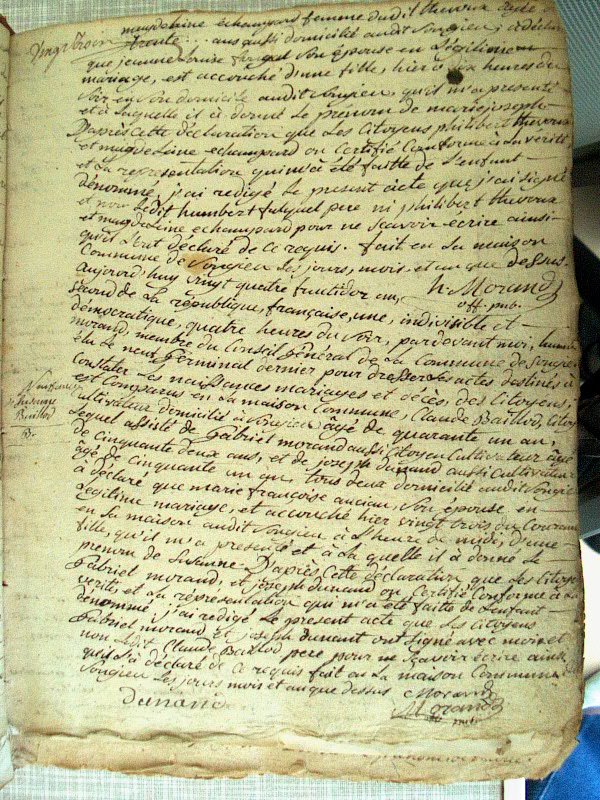 magdeleine échampard femme dudit thevoux agée de
vingt trois ans aussi domicilié audit Songieu, a déclaré
que jeanne Louise Son épouse en Légitime
mariage, est accouché d'une fille, hier à Six heures du
Soir en Son domicile audit Songieu, qu'il m'a présenté
et à laquelle il à donné le prenom de marie joseph
D'après Cette déclaration que Les Citoyens philibert thevoux
et magdeleine echampard on Certifié Conforme à La vérité
et La représentation qui m'a été faitte de L'enfant
dénommé, j'ai redigé Le present acte que j'ai signé
et non Ledit humbert pere ni philibert thevoux
et magdeleine echampard pour ne Scavoir écrire ainsi
qu'il L'ont déclaré de Ce requis. fait en La maison
Commune de Songieu Les jours, mois et an que dessus.
h Morand
off. pub.
aujord'huy vingt quatre fructidor an
Second de La république, française, une, indivisible et
démocratique, quatre heures du Soir, pardevant moi, humbert
morand, membre du Conseil général de La Commune de Songieu
élu Le neuf Germinal dernier pour dresser Les actes destinés à
Constater Les naissances mariages et décès, des Citoyens,
est Comparus en La maison Commune, Claude Baillod, Citoyen
Cultivateur domicilié à Songieu âgé de quarante un an,
Lequel assisté de Gabriel morand aussi Citoyen Cultivateur âgé
de cinquante deux ans, et de joseph Dunand aussi Cultivateur
âgé de cinquante un an, tous deux domicilié audit Songieu
à déclaré que marie françoise ancian, Son épouse en
Légitime mariage, est accouché hier vingt trois du Courant
en Sa maison audit Songieu à L'heure de midi, d'une
fille, qu'il m'a présenté et à La quelle il à donné Le
prenom de Susanne. D'après Cette déclaration que Les Citoyens
Gabriel morand, et joseph Dunand on Certifié Conforme à La
verité, et La représentation qui m'a été faitte de L'enfant
dénommé, j'ai redigé Le present acte que Les Citoyens
Gabriel morand, et joseph Dunant ont signé avec moi et
non Ledit Claude Baillod pere pour ne Scavoir écrire ainsi
qu'il L'a déclaré de Ce requis fait en La maison Commune
Songieu Les jours mois et an que dessus
Morand
dunand
Morand
off pub.
Susanne
Baillod